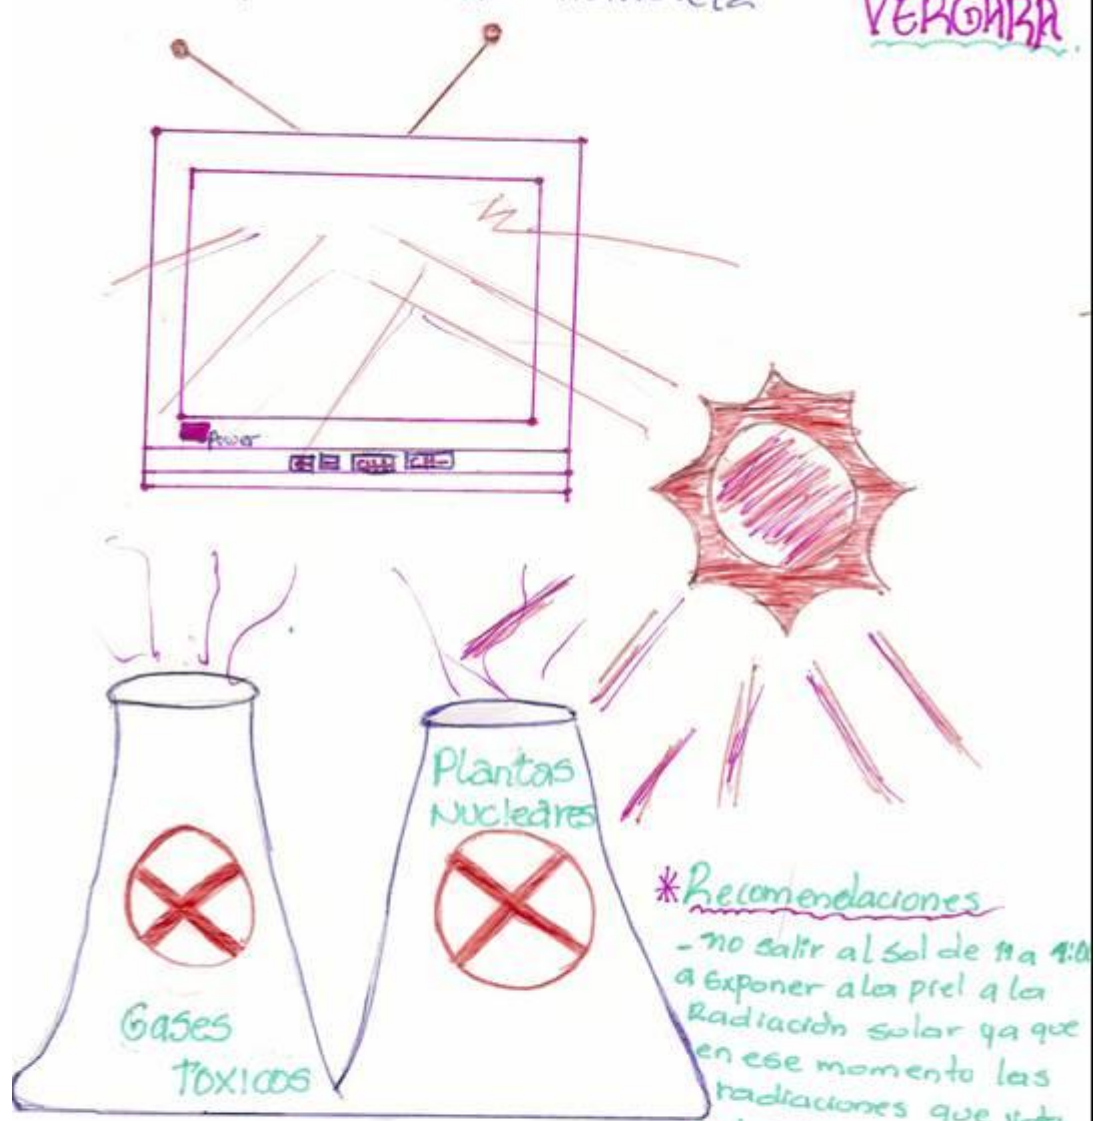 VERGARA
Power
CH-
Plantas
Nucleares
Gases
TOXICOS
*Recomendaciones
- no salir al sol de 11 a
a exponer a la piel a la
Radiación solar ya que
en ese momento las
radiaciones que